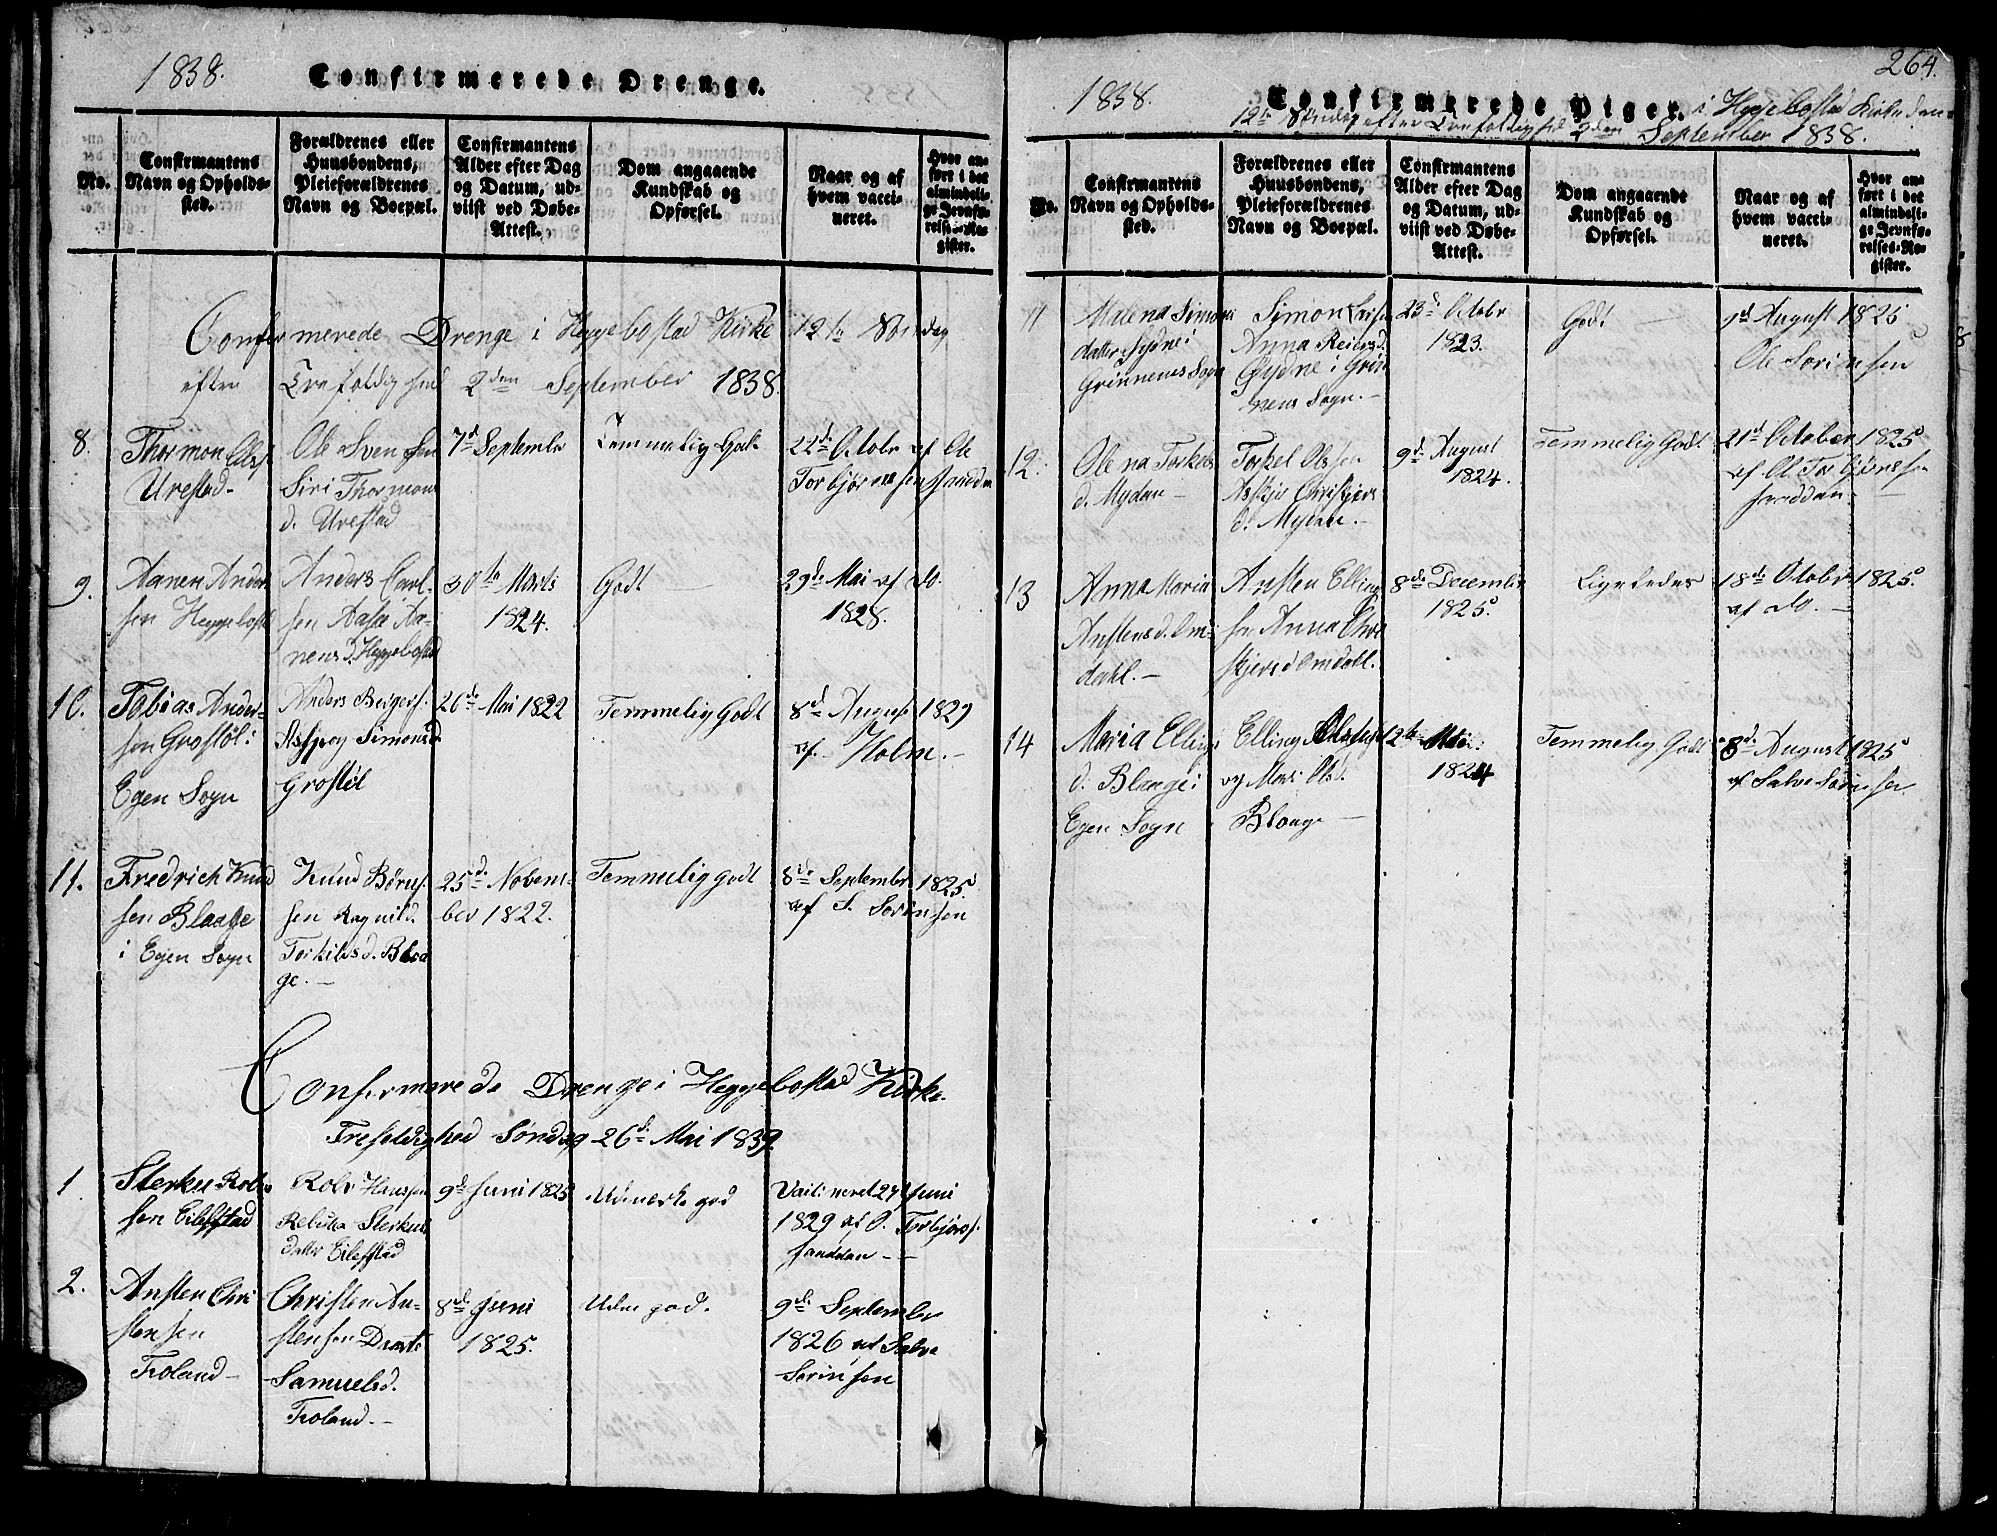 1838.
Confirmerede Drenge.
No.
Confirmantens
Navn og Opholds-
sted.
Forældrenes eller
Huusbondens,
Pleieforældrenes
Navn og Boepæl.
Confirmantens
Alder efter Dag
og Datum, ud-
viist ved Døbe-
Attest.
Dom angaaende
Kundskab og
Opførsel.
Naar og af
hvem vacci-
neret.
Hvor an-
ført i det
almindeli-
ge Jevnfø-
relses-Re-
gister.
Confirmerede Drenge i Heggebostad Kirke 12te Søndag
efter Trefoldighed 2den September 1838.
8.
Thormon Ols.
Urestad-
Ole Svensen
Siri Thormons
d. Urestad
7d September
Temmelig Godt
22d Octobr af Ole
Torbjørnsen
9.
Aanen Ander
sen Heggebostad
Anders Carl-
sen Aase Aa-
nensd. Heggebostad
30te Marts
1824.
Godt
29d Mai af do.
1828.
10.
Tobias Ander-
sen Grostøl i
Egen Sogn
Anders Birgers.
Asbjrog Simonsd
Grostøl
26d Mai 1822
Temmelig Godt
8d August 1829
af Holm.-
11.
Fredrich Knud
sen Blaage
i Egen Sogn
Knud Børus-
sen Ragnild
Torkildsd. Blaa
ge.-
25d Novem-
ber 1822.
Temmelig godt
8de September 1825
af S. Sørinsen
Confermerede Drenge i Heggebostad Kirke
Trefoldighed Søndag 26d Mai 1839.
1
Sterku Rolv
sen Eilefstad
Rolv Hanssen
Sterkus
datter Eilefstad
9d Juni 1825
Udmerke god
Vaccineret 27d Juni
1829 af O. Torbjørns.
2.
Ansten Chri
stensen
Froland-
Christen An-
stensen
Samuelsd.
Froland.-
8d Juni
1825.
Udm god.
9d September
1826 af Salve
Sørinsen
264.
1838.
Confirmerede Piger. i Heggebostad Kirke den
12te Søndag efter Trefoldighed 2den September 1838.
No.
Confirmantens
Navn og Opholds-
sted.
Forældrenes eller
Huusbondens,
Pleieforældrenes
Navn og Boepæl.
Confirmantens
Alder efter Dag
og Datum, ud-
viist ved Døbe-
Attest.
Dom angaaende
Kundskab og
Opførsel.
Naar og af
hvem vacci-
neret.
Hvor an-
ført i det
almindeli-
ge Jevnfø-
relses-Re-
gister.
11
Malena Simons
datter Øydne i
Grinnenes Sogn
Simon
Anna Reiersd.
Øydne i Grin
nens Sogn.-
23d Octobr
1823.
Godt
9d August 1825
Ole Sørinsen
12.
Olena Torkels
d. Mydan-
Torkel Olssen
Askjer Christjers
d. Mydan.-
9d August
1824.
Temmelig Godt
21d October 1825
af Ol Torbjørnssen
13
Anna Maria
Anstensd. Om-
dahl.-
Ansten Elling
sen Anna Chri
stjersd Omdahl.
8de December
1825.
Ligeledes
18de Octobr 1825.
af do.-
14
Maria Ellings
d. Blaage i
Egen Sogn
Elling
og Mari Olsd.
Blaage-
12te Mai
1824
Temmelig Godt
8d August 1825
af Salve Sørinsen